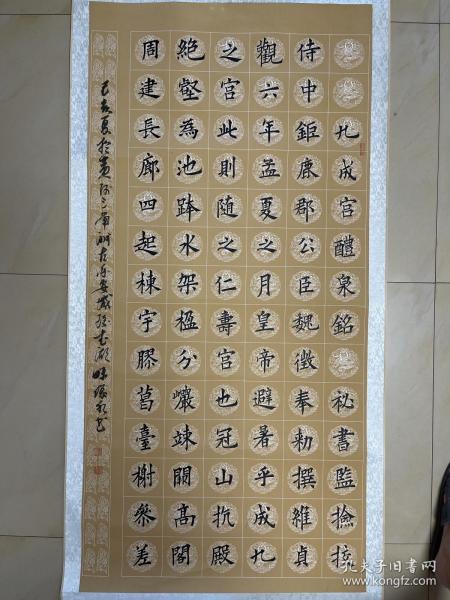 九成宮醴泉銘秘書監撿挍
侍中鉅鹿郡公臣魏徵奉勑撰維貞
觀六年孟夏之月皇帝避暑乎成九
之宮此則隨之仁壽宮也冠山抗殿
絕壑為池跨水架楹分巖竦闕高閣
周建長廊四起棟宇膠葛臺榭參差
己亥夏於
孔夫子旧书网
www.kongfz.com